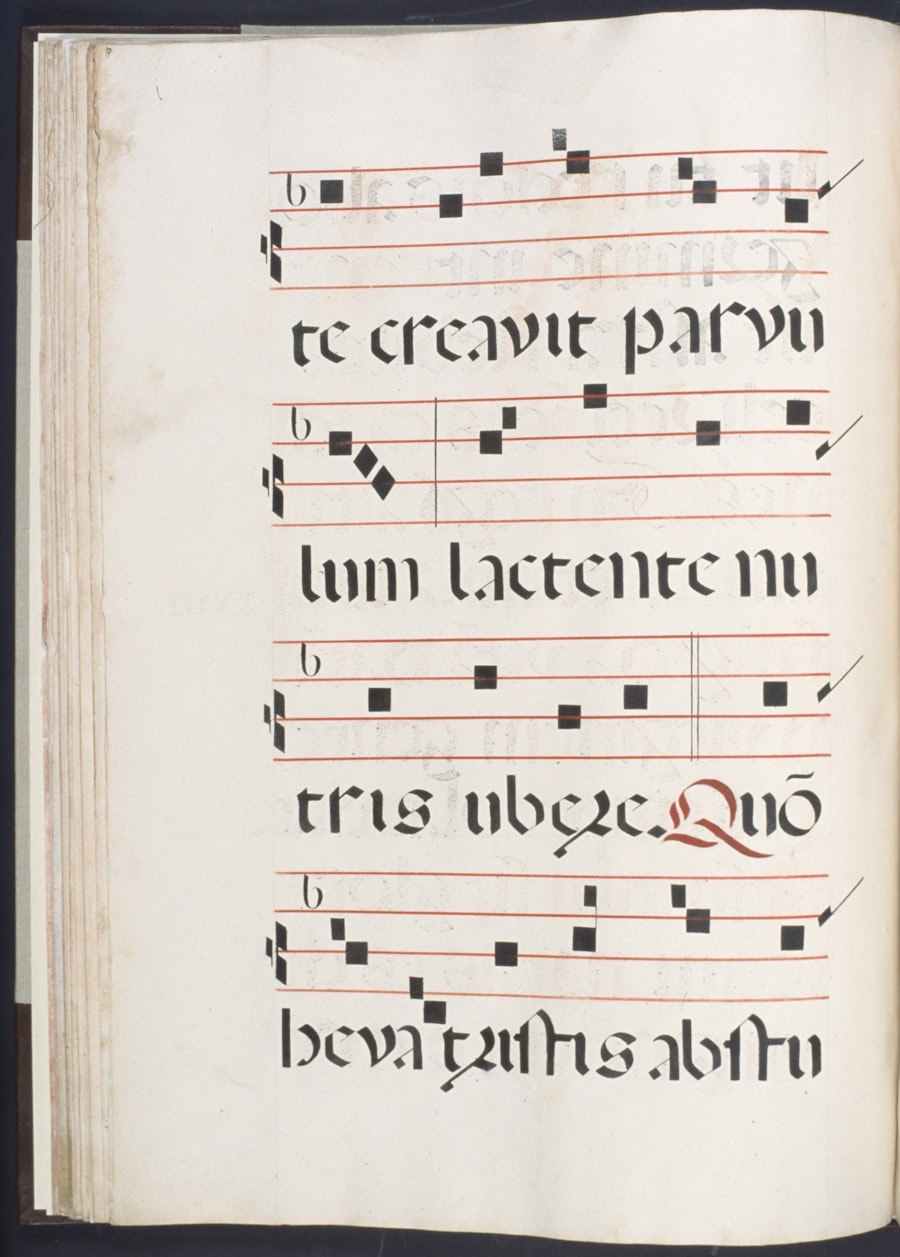 te creavit parvu
lum lactente nu
tris ubere. Quō
heva tristis abstu